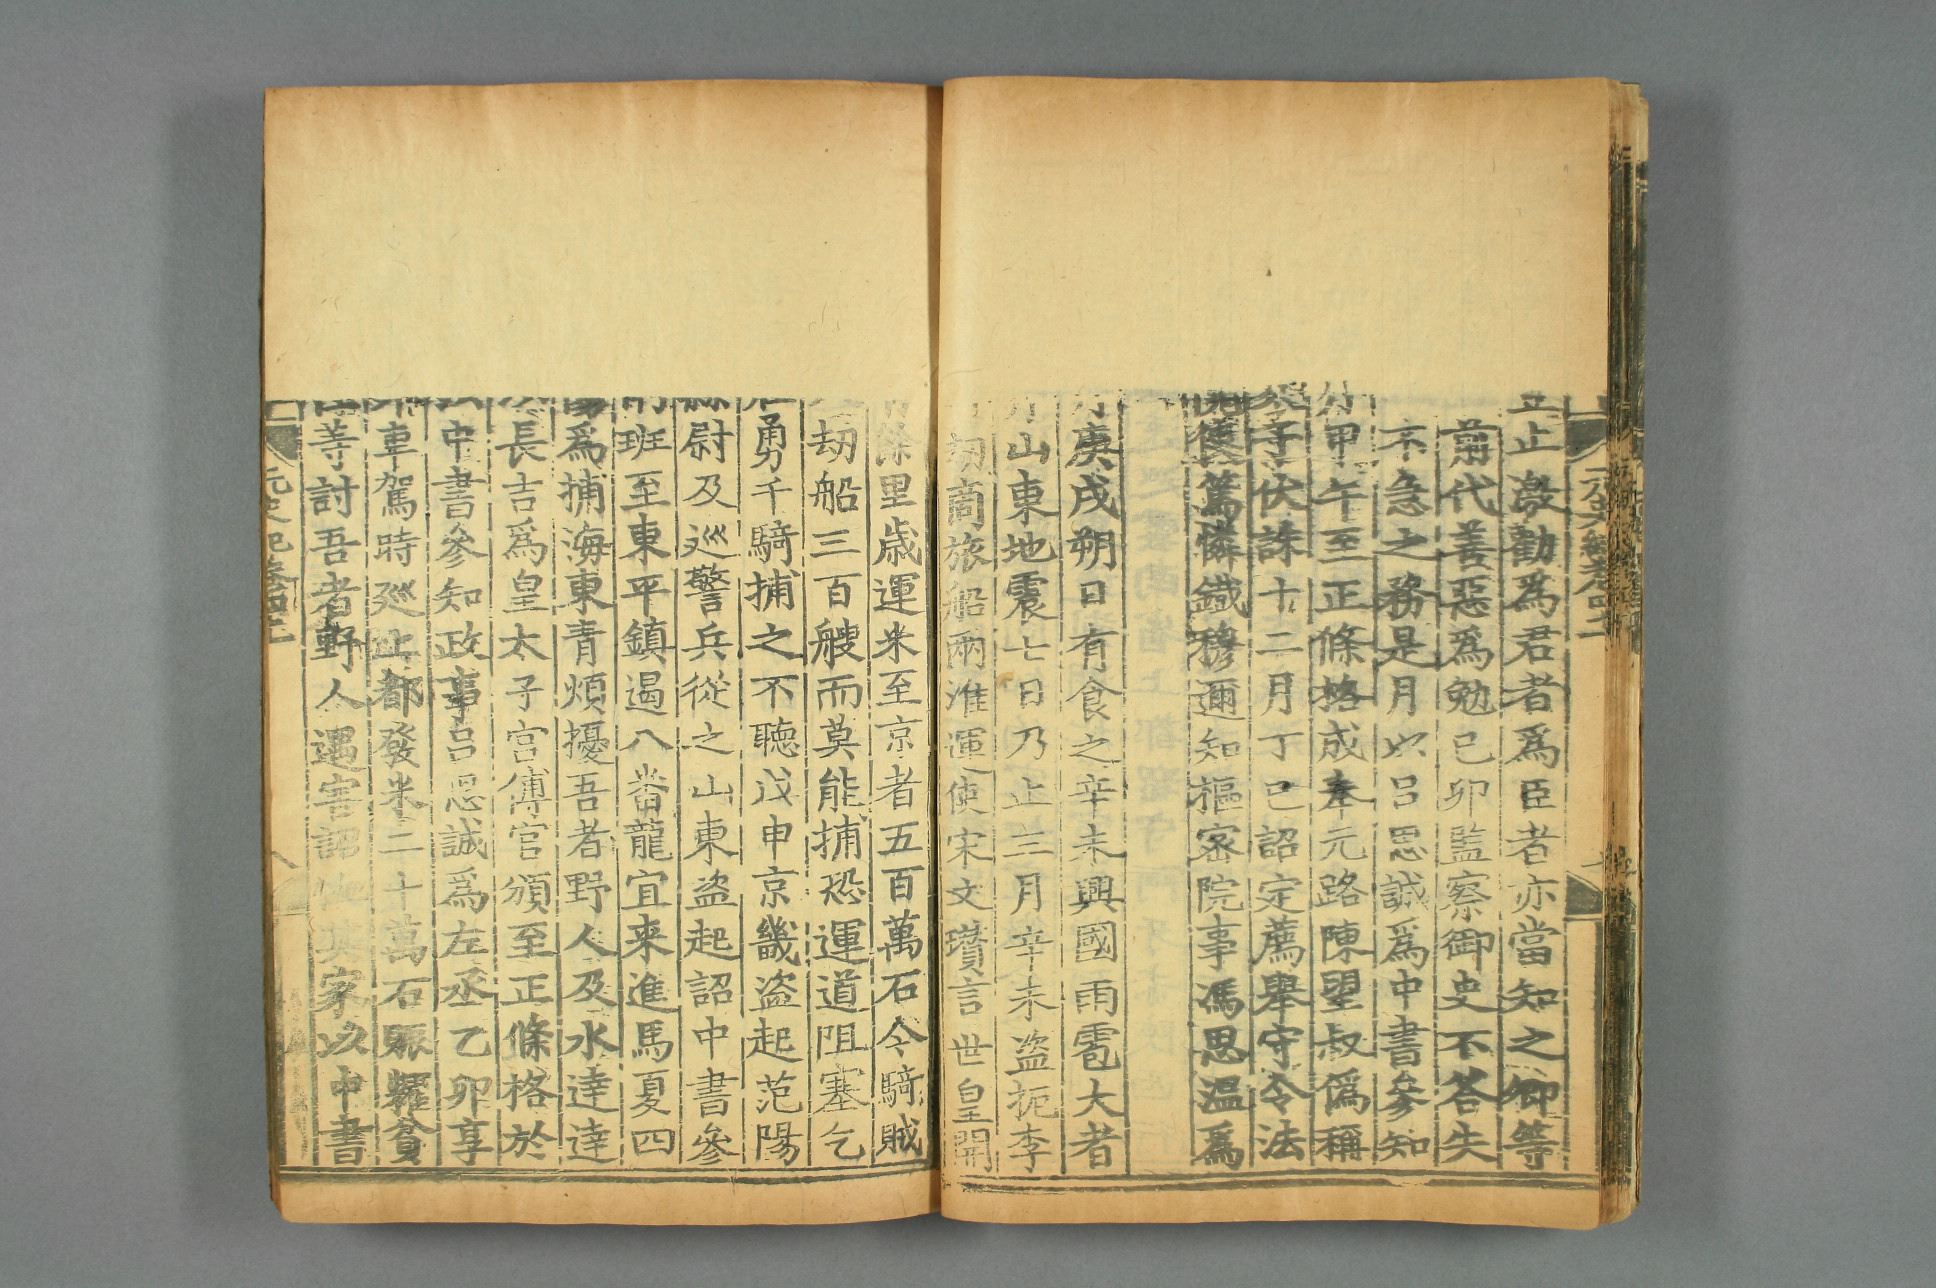 止激勸爲君者爲臣者亦當知之卿等
前代善惡爲勉己卯監察御史不荅失
不急之務是月以吕思誠爲中書參知
甲午至正條格成奉元路陳望叔僞稱
李伏誅十二月丁巳詔定薦舉守令法
篤憐鐵穆邇知樞密院事馮思温爲
庚戌朔日有食之辛未興國雨雹大者
山東地震七日乃止三月辛未盗扼李
刼商旅船兩淮運使宋文瓚言世皇開
餘里歳運米至京者五百萬石今騎賊
刼船三百艘而莫能捕恐運道阻塞乞
勇千騎捕之不聽戊申京畿盗起范陽
縣尉及巡警兵從之山東盗起詔中書參
班至東平鎮遏八番龍宜来進馬夏四
爲捕海東青煩擾吾者野人及水達達
長吉爲皇太子宮傅官頒至正條格於
中書參知政事吕思誠爲左丞乙卯享
車駕時巡上都發米二十萬石賑糶貧
等討吾者野人遇害詔恤其家以中書
元史紀卷四十二
八